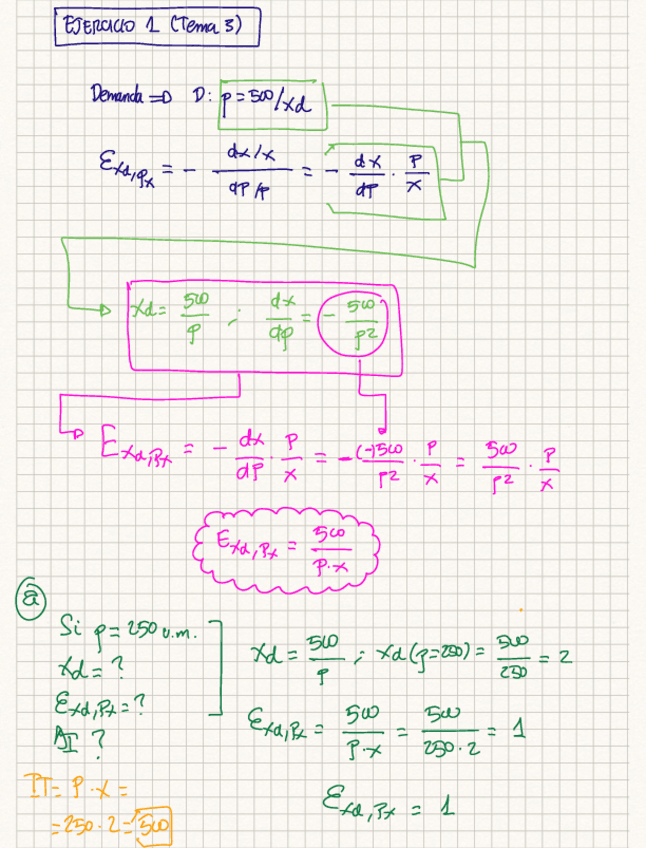 EJERCICIO 1 (Tema 3)
Demanda => D: p = 500/xd
Exd,px = - dx/x / dp/p = - dx/dp · p/x
xd = 500/p ; dx/dp = - 500/p2
Exd,px = - dx/dp · p/x = -(-)500/p2 · p/x = 500/p2 · p/x
Exd,Px = 500/p·x
a
Si p = 250 u.m.
xd = ?
Exd,Px = ?
xd = 500/p ; xd (p=250) = 500/250 = 2
Exd,Px = 500/p·x = 500/250·2 = 1
Exd,Px = 1
IT = P · x =
= 250 · 2 = 500